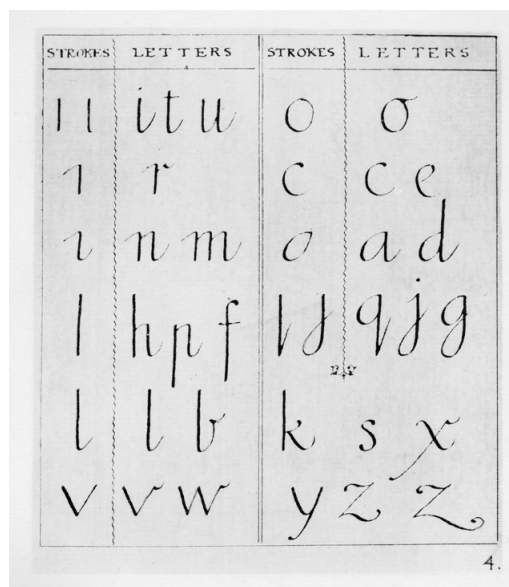 STROKES LETTERS STROKES LETTERS
ı l i t u o o
ı r c c e
ı n m o a d
l h p f l j q j g
l l b k s x
v v w y z z
4.